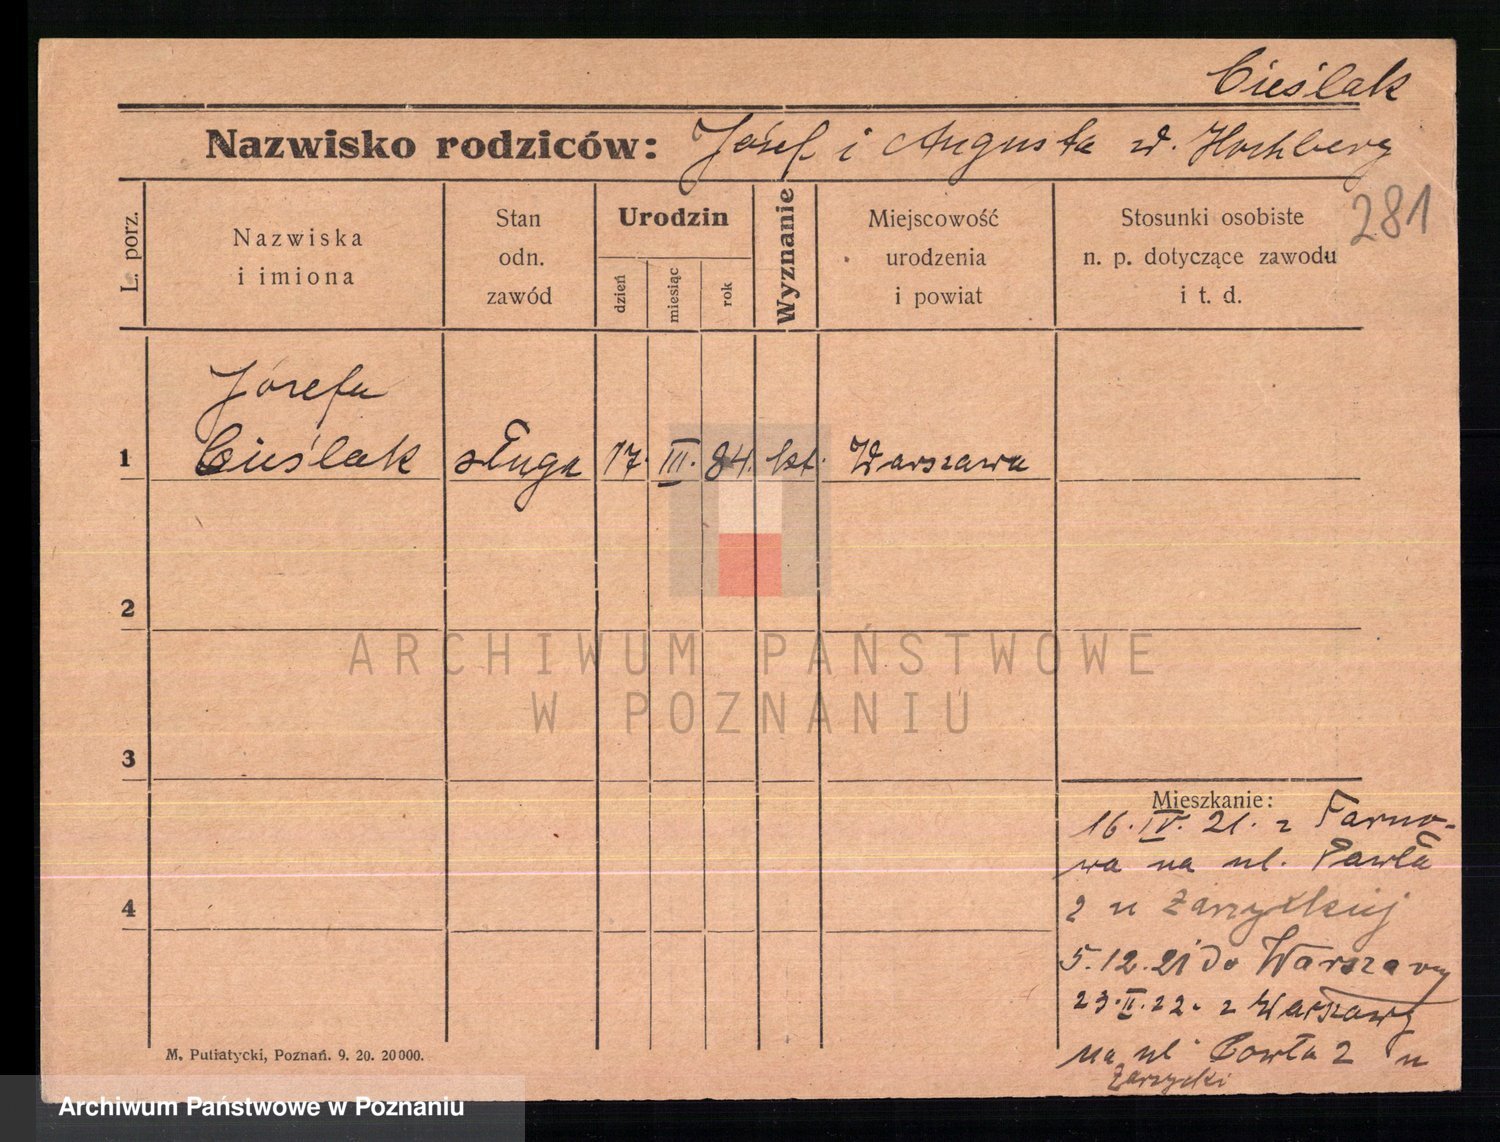 Cieślak
Nazwisko rodziców: Józef i Augusta zd. Hochberg
281
L. porz.
Nazwiska
i imiona
Stan
odn.
zawód
Urodzin
dzień
miesiąc
rok
Wyznanie
Miejscowość
urodzenia
i powiat
Stosunki osobiste
n. p. dotyczące zawodu
i t. d.
Józefa
1 Cieślak sługa 17. III. 84. kt. Warszawa
2
ARCHIWUM PAŃSTWOWE
W POZNANIU
3
Mieszkanie:
16. IV. 21. z Tarno-
wa na ul. Pawła
4
2 u Zarzyckiej
5.12.21 do Warszawy
23.II.22. z Warszawy
na ul. Pawła 2 u
Zarzycki
M. Putiatycki, Poznań. 9. 20. 20000.
Archiwum Państwowe w Poznaniu